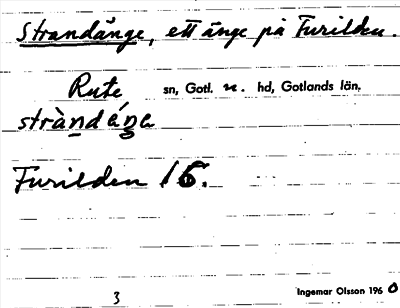 Strandänge, ett änge på Furilden.
Rute sn, Gotl. n. hd, Gotlands län.
Furilden 16.
3
Ingemar Olsson 1960